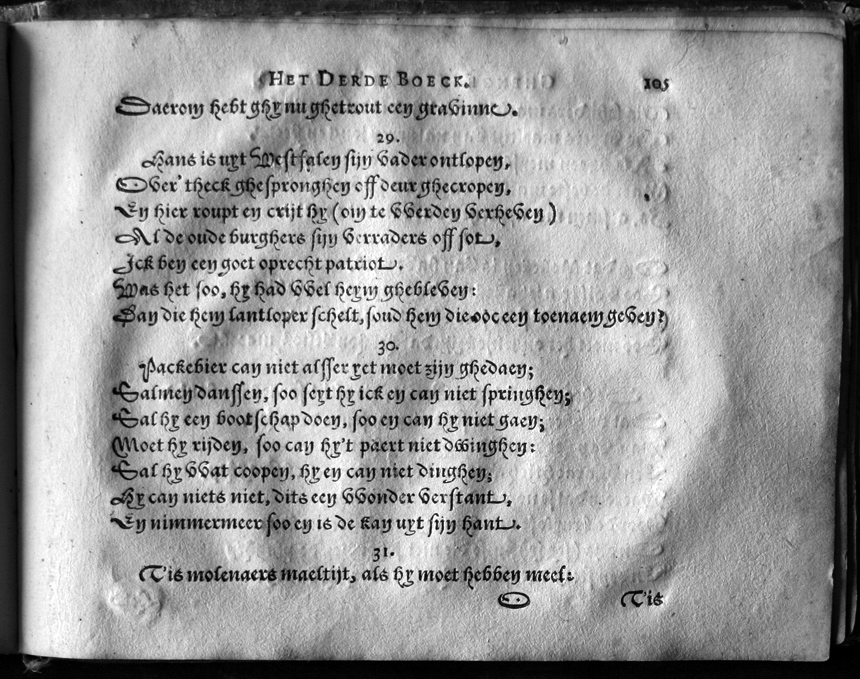 HET DERDE BOECK. 105
Daerom hebt ghy nu ghetrout een gravinne.
29.
Hans is uyt Westfalen sijn vader ontlopen,
Over theck ghespronghen off deur ghecropen,
En hier roupt en crijt hy (om te VVerden verheven)
Al de oude burghers sijn verraders off sot,
Ick ben een goet oprecht patriot.
Was het soo, hy had VVel heym ghebleven:
San die hem lantloper schelt, soud hem die ooc een toenaem geven?
30.
Packebier can niet alsser yet moet zijn ghedaen;
Salmen danssen, soo seyt hy ick en can niet springhen;
Sal hy een bootschap doen, soo en can hy niet gaen;
Moet hy rijden, soo can hy't paert niet dwinghen:
Sal hy VVat coopen, hy en can niet dinghen;
Hy can niets niet, dits een VVonder verstant,
En nimmermeer soo en is de kan uyt sijn hant.
31.
Tis molenaers maeltijt, als hy moet hebben meel:
O Tis